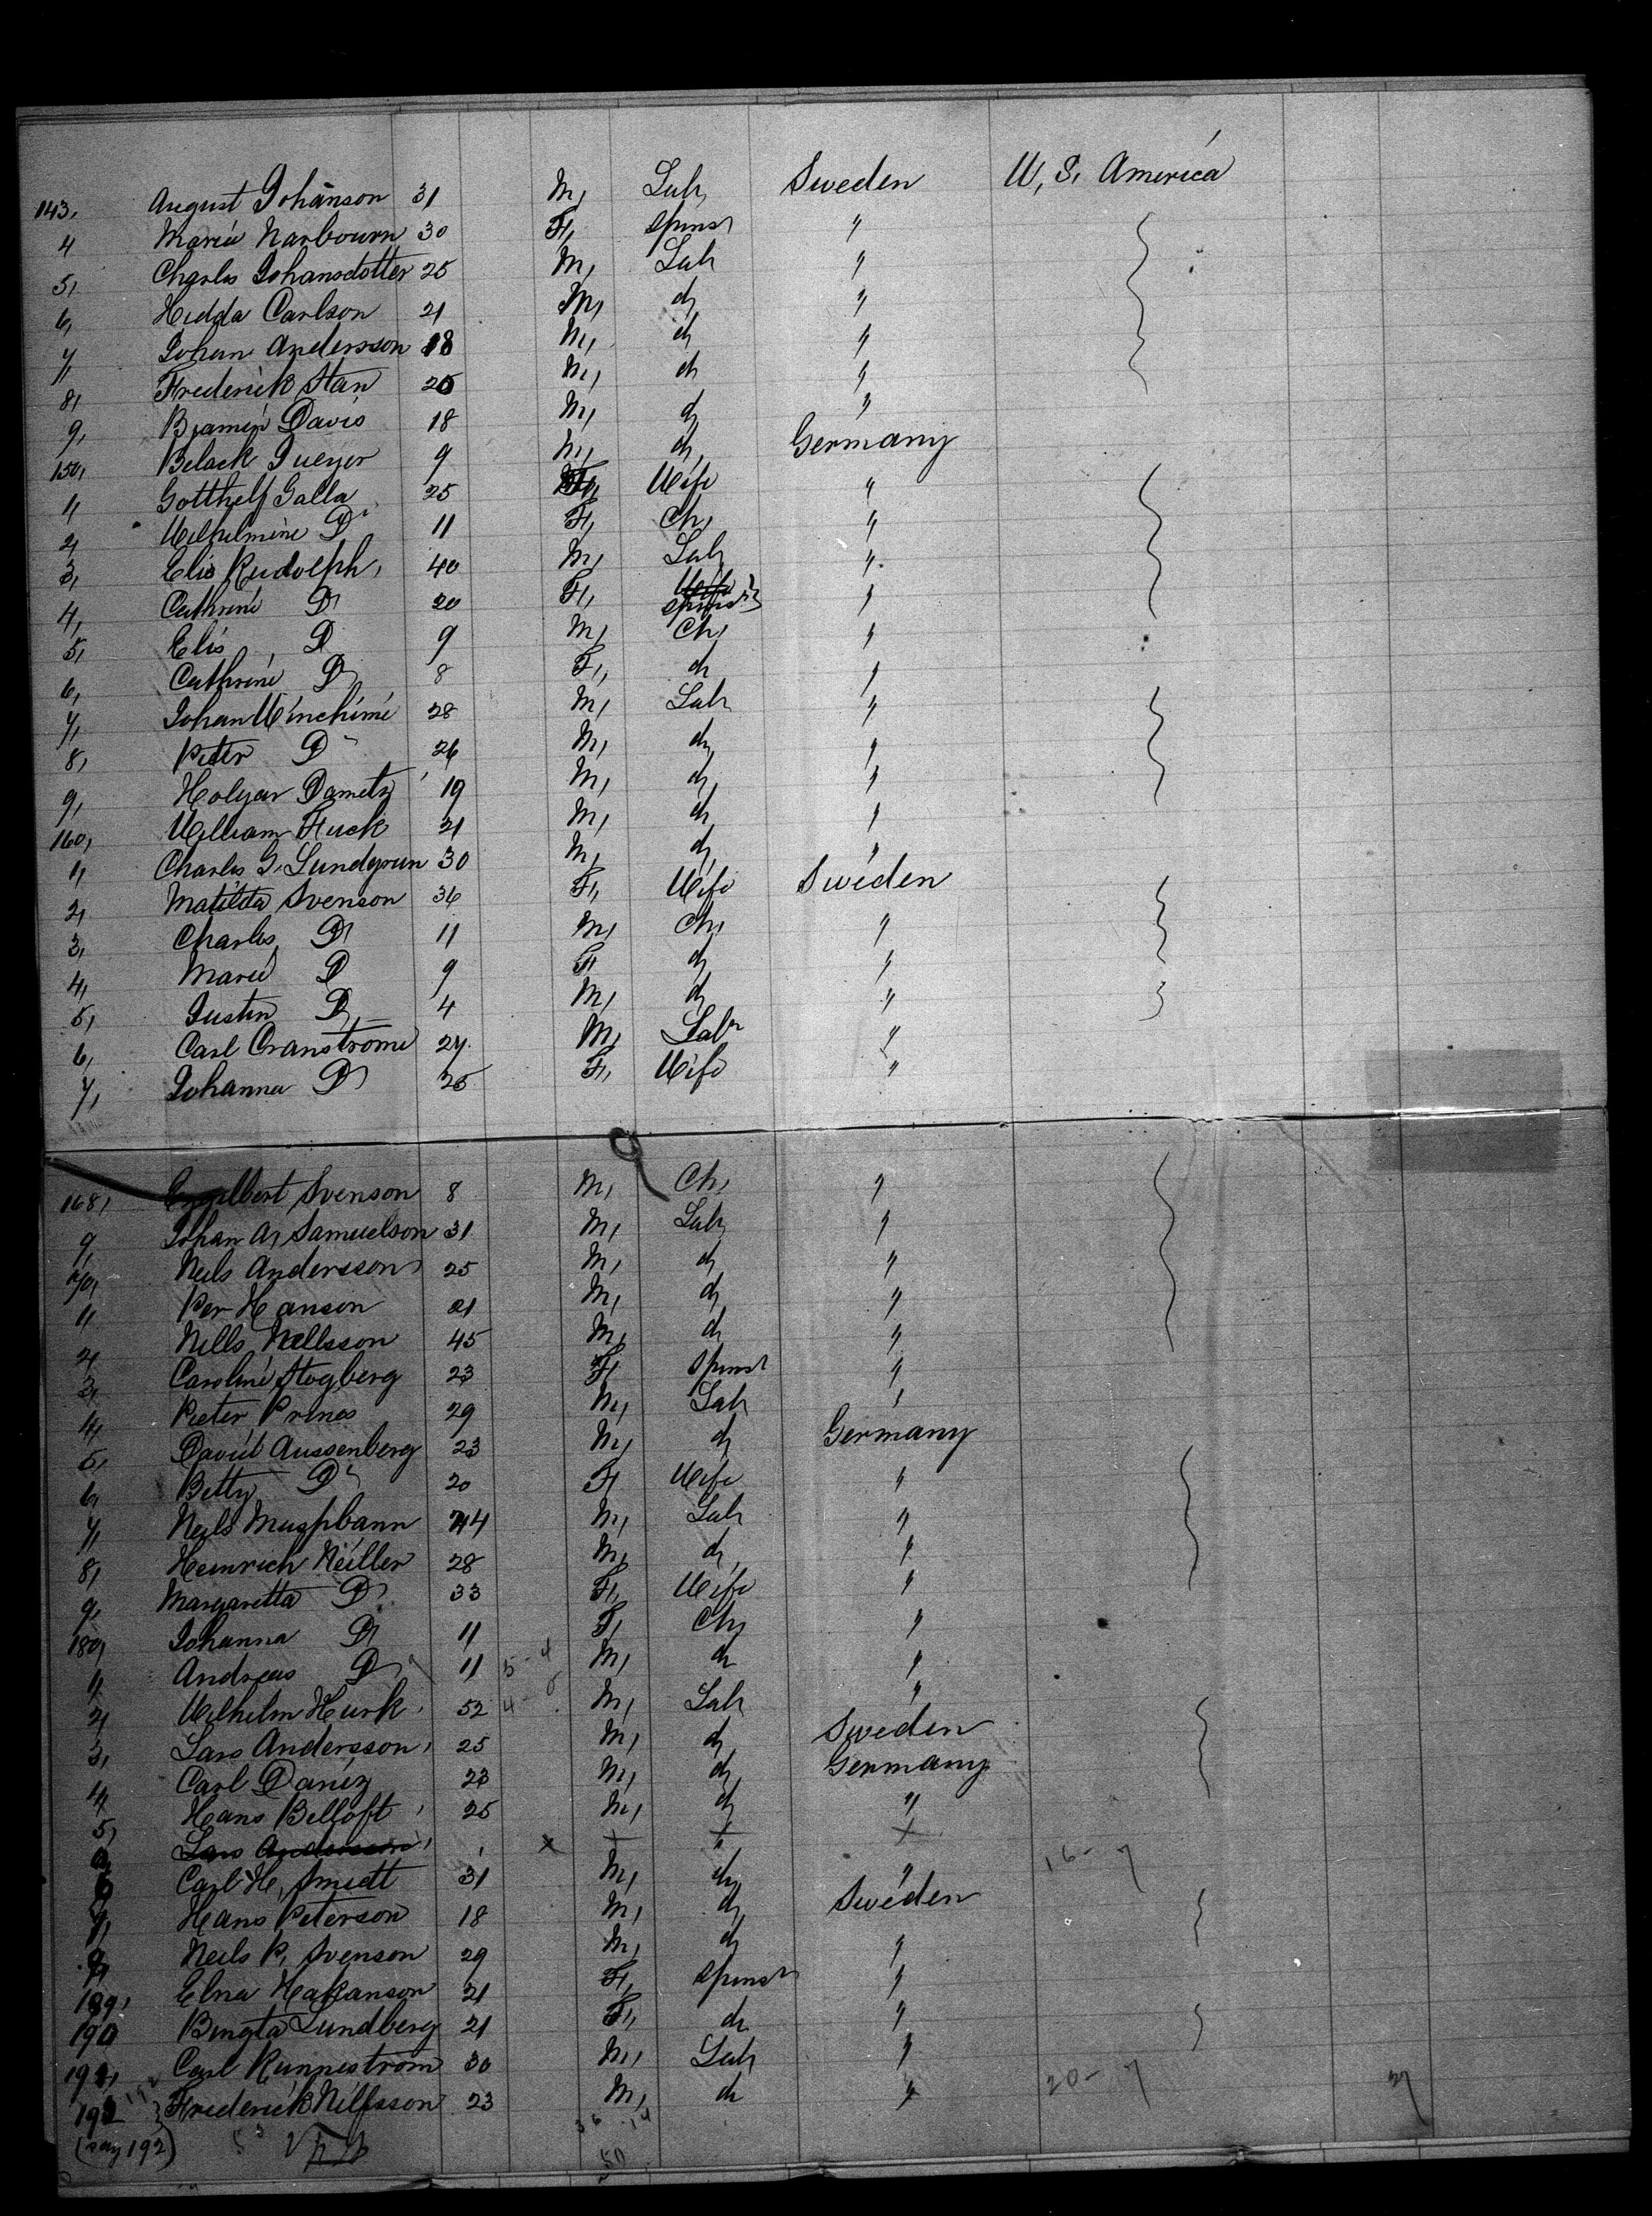 143, August Johanson 31 M, Labr Sweden U, S, America
4 Maria Narbourn 30 F, Spinst "
5, Charles Johansdotter 25 M, Labr "
6, Hedda Carlson 21 M, do "
7, Johan Andersson 18 M, do "
8, Frederick Stan 25 M, do "
9, Bjamin Davis 18 M, do "
150, Belack Dueyer 9 M, do Germany
1, Gotthelf Galla 25 F, Wife "
2, Wilhelmine Do 11 F, Ch, "
3, Elis Rudolph, 40 M, Labr "
4, Cathrine Do 20 F, Spinst "
5, Elis, Do 9 M, Ch, "
6, Cathrine Do 8 F, do "
7, Johan Winchime 28 M, Labr "
8, Peter Do 26 M, do "
9, Holgar Dametz 19 M, do "
160, William Fuck 21 M, do "
1, Charles G. Lundgrun 30 M, do "
2, Matilda Svenson 36 F, Wife Sweden
3, Charles Do 11 M, Ch, "
4, Marie Do 9 F, do "
5, Justin Do 4 M, do "
6, Carl Cranstrome 27 M, Labr "
7, Johanna Do 25 F, Wife "
168, Engelbert Svenson 8 M, Ch, "
9, Johan A, Samuelson 31 M, Labr "
170, Neils Andersson 25 M, do "
1, Per Hanson 21 M, do "
2, Nells Nellsson 45 M, do "
3, Caroline Hogberg 23 F, Spinst "
4, Pieter Prines 29 M, Labr "
5, David Aussenberg 23 M, do Germany
6, Betty Do 20 F, Wife "
7, Neils Muspbann 44 M, Labr "
8, Heinrich Neiller 28 M, do "
9, Margaretta Do 33 F, Wife "
180, Johanna Do 11 F, Ch, "
1, Andreas Do 11 M, do "
2, Wilhelm Hurk 52 M, Labr "
3, Lars Andersson, 25 M, do Sweden
4, Carl Daniz 23 M, do Germany
5, Hans Belloft 25 M, do "
Lars Andersson
6 Carl H, Smidt 31 M, do "
7, Hans Peterson 18 M, do Sweden
8, Neils P, Svenson 29 M, do "
189, Elna Hakanson 21 F, Spinst "
190 Bengta Lundberg 21 F, do "
191, Carl Runnestrom 30 M, Labr "
192 Frederick Nilfsson 23 M, do "
(say 192)